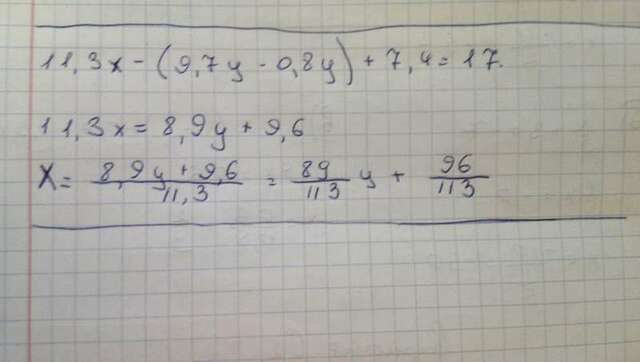 11,3x - (9,7y - 0,8y) + 7,4 = 17.
11,3x = 8,9y + 9,6
X = (8,9y + 9,6)/11,3 = 89/113 y + 96/113